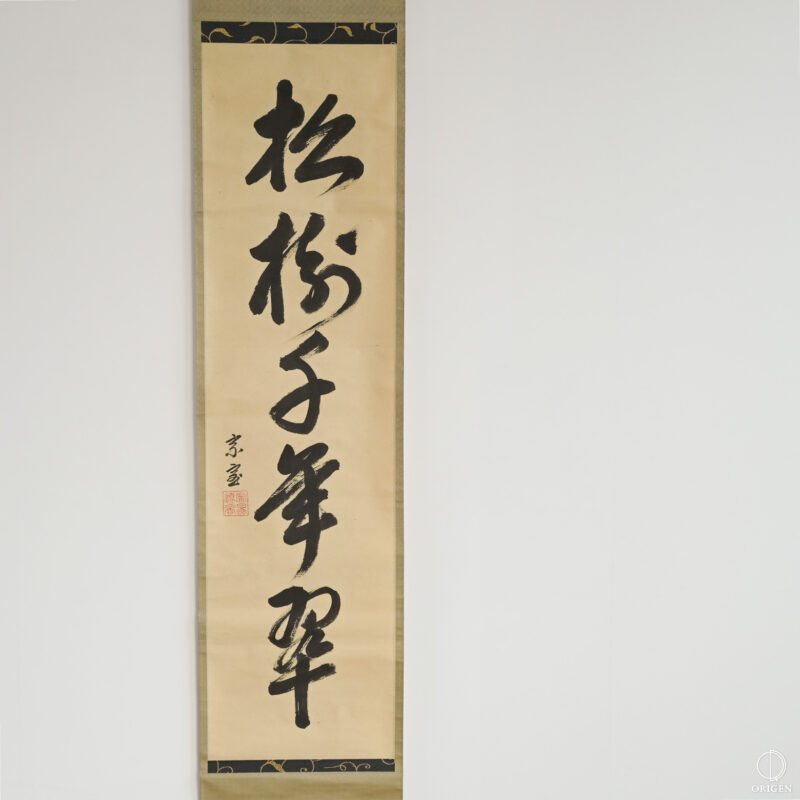 松樹千年翠
宗
ORIGEN